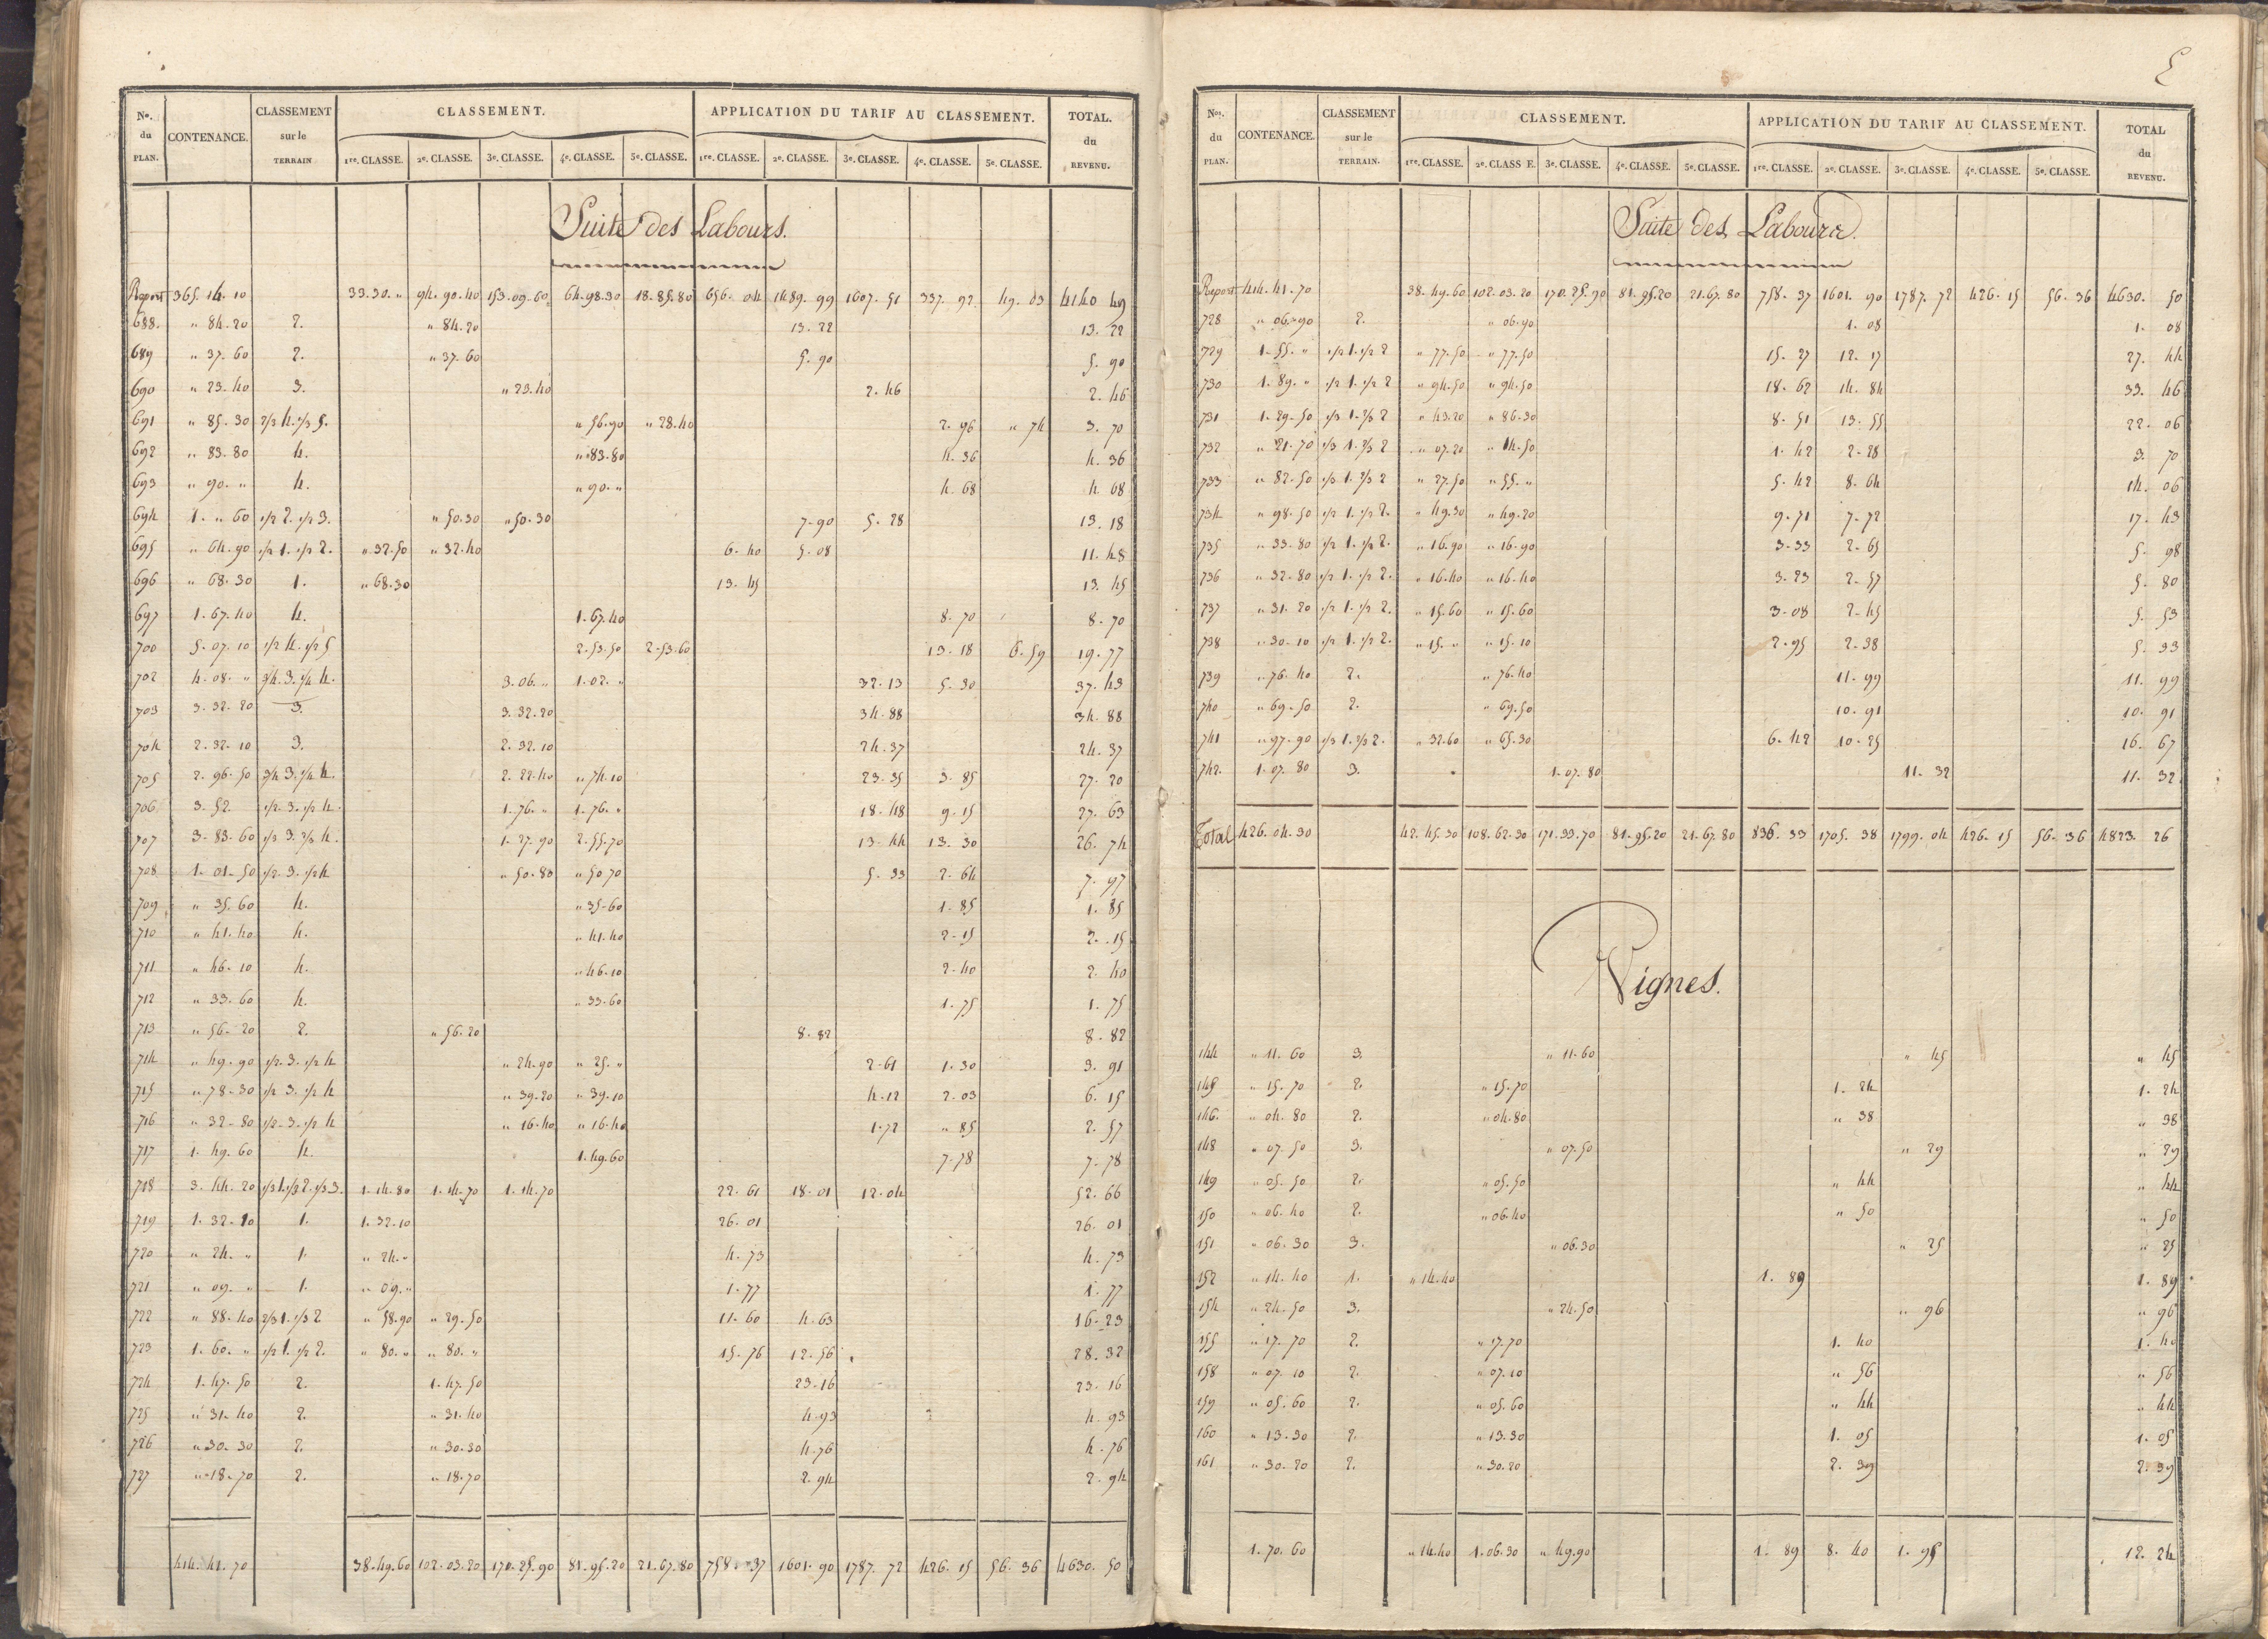 Nos. du PLAN. CONTENANCE. CLASSEMENT sur le TERRAIN CLASSEMENT. APPLICATION DU TARIF AU CLASSEMENT. TOTAL. du REVENU.
1re. CLASSE. 2e. CLASSE. 3e. CLASSE. 4e. CLASSE. 5e. CLASSE. 1re. CLASSE. 2e. CLASSE. 3e. CLASSE. 4e. CLASSE. 5e. CLASSE.
Suite des Labours.
Report 365. 14. 10 33.30. " 94. 90. 40 153. 09. 60 64. 98. 30 18. 85. 80 656. 04 1489. 99 1607. 51 337. 92 49. 03 4140 49
688. " 84. 20 2. " 84. 20 13. 22 13. 22
689 " 37. 60 2. " 37. 60 5. 90 5. 90
690 " 23. 40 3. " 23. 40 2. 46 2. 46
691 " 85. 30 2/3 4. 1/3 5. " 56. 90 " 28. 40 2. 96 " 74 3. 70
692 " 83. 80 4. " 83. 80 4. 36 4. 36
693 " 90. " 4. " 90. " 4. 68 4. 68
694 1. " 60 1/2 2. 1/2 3. " 50. 30 " 50. 30 7. 90 5. 28 13. 18
695 " 64. 90 1/2 1. 1/2 2. " 32. 50 " 32. 40 6. 40 5. 08 11. 48
696 " 68. 30 1. " 68. 30 13. 45 13. 45
697 1. 67. 40 4. 1. 67. 40 8. 70 8. 70
700 5. 07. 10 1/2 4. 1/2 5 2. 53. 50 2. 53. 60 13. 18 6. 59 19. 77
702 4. 08. " 3/4. 3. 1/4 4. 3. 06. " 1. 02. " 32. 13 5. 30 37. 43
703 3. 32. 20 3. 3. 32. 20 34. 88 34. 88
704 2. 32. 10 3. 2. 32. 10 24. 37 24. 37
705 2. 96. 50 3/4 3. 1/4 4. 2. 22. 40 " 74. 10 23. 35 3. 85 27. 20
706 3. 52 1/2. 3. 1/2 4. 1. 76. " 1. 76. " 18. 48 9. 15 27. 63
707 3. 83. 60 1/3 3. 2/3 4. 1. 27. 90 2. 55. 70 13. 44 13. 30 26. 74
708 1. 01. 50 1/2. 3. 1/2 4 " 50. 80 " 50 70 5. 33 2. 64 7. 97
709 " 35. 60 4. " 35. 60 1. 85 1. 85
710 " 41. 40 4. " 41. 40 2. 15 2. 15
711 " 46. 10 4. " 46. 10 2. 40 2. 40
712 " 33. 60 4. " 33. 60 1. 75 1. 75
713 " 56. 20 2. " 56. 20 8. 82 8. 82
714 " 49. 90 1/2. 3. 1/2 4 " 24. 90 " 25. " 2. 61 1. 30 3. 91
715 " 78. 30 1/2 3. 1/2 4 " 39. 20 " 39. 10 4. 12 2. 03 6. 15
716 " 32. 80 1/2. 3. 1/2 4 " 16. 40 " 16. 40 1. 72 " 85 2. 57
717 1. 49. 60 4. 1. 49. 60 7. 78 7. 78
718 3. 44. 20 1/3 1. 1/3 2. 1/3 3. 1. 14. 80 1. 14. 70 1. 14. 70 22. 61 18. 01 12. 04 52. 66
719 1. 32. 10 1. 1. 32. 10 26. 01 26. 01
720 " 24. " 1. " 24. " 4. 73 4. 73
721 " 09. " 1. " 09. " 1. 77 1. 77
722 " 88. 40 2/3 1. 1/3 2 " 58. 90 " 29. 50 11. 60 4. 63 16. 23
723 1. 60. " 1/2 1. 1/2 2. " 80. " " 80. " 15. 76 12. 56 28. 32
724 1. 47. 50 2. 1. 47. 50 23. 16 23. 16
725 " 31. 40 2. " 31. 40 4. 93 4. 93
726 " 30. 30 2. " 30. 30 4. 76 4. 76
727 " 18. 70 2. " 18. 70 2. 94 2. 94
414. 41. 70 38. 49. 60 102. 03. 20 170. 25. 90 81. 95. 20 21. 67. 80 758. 37 1601. 90 1787. 72 426. 15 56. 36 4630. 50
Nos. du PLAN. CONTENANCE. CLASSEMENT sur le TERRAIN. CLASSEMENT. APPLICATION DU TARIF AU CLASSEMENT. TOTAL du REVENU.
1re. CLASSE. 2e. CLASS E. 3e. CLASSE. 4e. CLASSE. 5e. CLASSE. 1re. CLASSE. 2e. CLASSE. 3e. CLASSE. 4e. CLASSE. 5e. CLASSE.
Suite des Labours.
Report 414. 41. 70 38. 49. 60 102. 03. 20 170. 25. 90 81. 95. 20 21. 67. 80 758. 37 1601. 90 1787. 72 426. 15 56. 36 4630. 50
728 " 06. 90 2. " 06. 90 1. 08 1. 08
729 1. 55. " 1/2 1. 1/2 2 " 77. 50 " 77. 50 15. 27 12. 17 27. 44
730 1. 89. " 1/2 1. 1/2 2 " 94. 50 " 94. 50 18. 62 14. 84 33. 46
731 1. 29. 50 1/3 1. 2/3 2 " 43. 20 " 86. 30 8. 51 13. 55 22. 06
732 " 21. 70 1/3 1. 2/3 2 " 07. 20 " 14. 50 1. 42 2. 28 3. 70
733 " 82. 50 1/3 1. 2/3 2 " 27. 50 " 55. " 5. 42 8. 64 14. 06
734 " 98. 50 1/2 1. 1/2 2. " 49. 30 " 49. 20 9. 71 7. 72 17. 43
735 " 33. 80 1/2 1. 1/2 2. " 16. 90 " 16. 90 3. 33 2. 65 5. 98
736 " 32. 80 1/2 1. 1/2 2. " 16. 40 " 16. 40 3. 23 2. 57 5. 80
737 " 31. 20 1/2 1. 1/2 2. " 15. 60 " 15. 60 3. 08 2. 45 5. 53
738 " 30. 10 1/2 1. 1/2 2. " 15. " " 15. 10 2. 95 2. 38 5. 33
739 " 76. 40 2. " 76. 40 11. 99 11. 99
740 " 69. 50 2. " 69. 50 10. 91 10. 91
741 " 97. 90 1/3 1. 2/3 2. " 32. 60 " 65. 30 6. 42 10. 25 16. 67
742. 1. 07. 80 3. 1. 07. 80 11. 32 11. 32
Total 426. 04. 30 42. 45. 30 108. 62. 30 171. 33. 70 81. 95. 20 21. 67. 80 836. 33 1705. 38 1799. 04 426. 15 56. 36 4823. 26
Vignes.
144 " 11. 60 3. " 11. 60 " 45 " 45
145 " 15. 70 2. " 15. 70 1. 24 1. 24
146. " 04. 80 2. " 04. 80 " 38 " 38
148 " 07. 50 3. " 07. 50 " 29 " 29
149 " 05. 50 2. " 05. 50 " 44 " 44
150 " 06. 40 2. " 06. 40 " 50 " 50
151 " 06. 30 3. " 06. 30 " 25 " 25
152 " 14. 40 1. " 14. 40 1. 89 1. 89
154 " 24. 50 3. " 24. 50 " 96 " 96
155 " 17. 70 2. " 17. 70 1. 40 1. 40
158 " 07. 10 2. " 07. 10 " 56 " 56
159 " 05. 60 2. " 05. 60 " 44 " 44
160 " 13. 30 2. " 13. 30 1. 05 1. 05
161 " 30. 20 2. " 30. 20 2. 39 2. 39
1. 70. 60 " 14. 40 1. 06. 30 " 49. 90 1. 89 8. 40 1. 95 12. 24